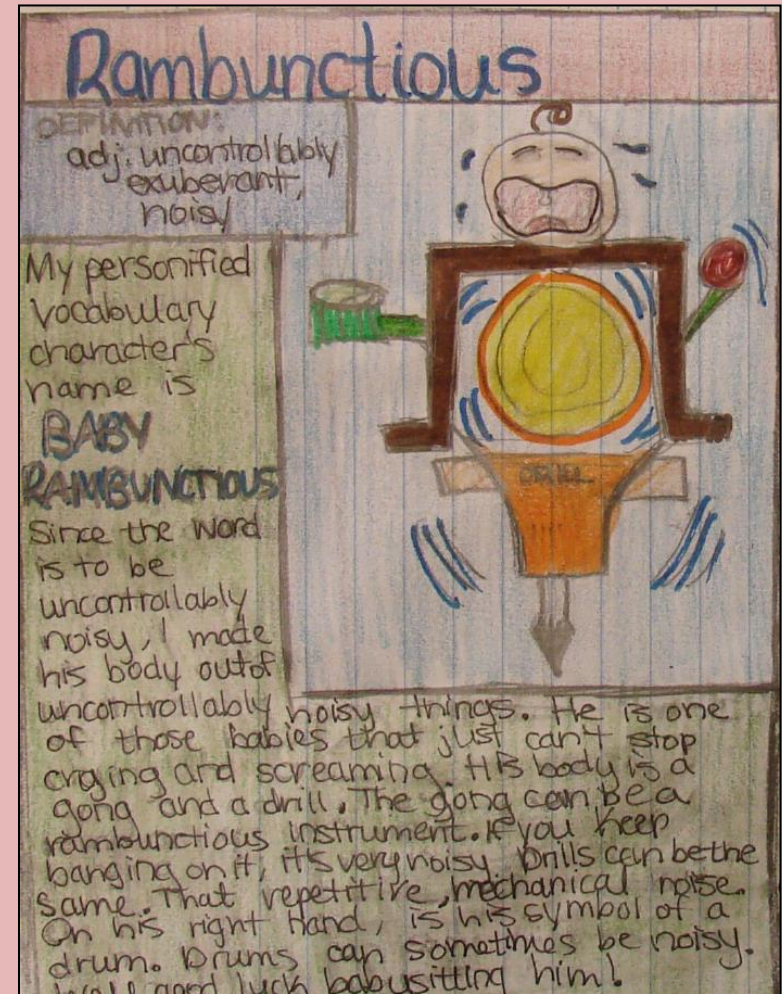 Rambunctious
DEFINITION:
adj. uncontrollably
exuberant,
noisy
My personified
vocabulary
character's
name is
BABY
RAMBUNCTIOUS
Since the word
is to be
uncontrollably
noisy, I made
his body out of
uncontrollably noisy things. He is one
of those babies that just can't stop
crying and screaming. His body is a
gong and a drill. The gong can be a
rambunctious instrument. If you keep
banging on it, it's very noisy. Drills can be the
same. That repetitive, mechanical noise.
On his right hand, is his symbol of a
drum. Drums can sometimes be noisy.
Well good luck babysitting him!
DRILL